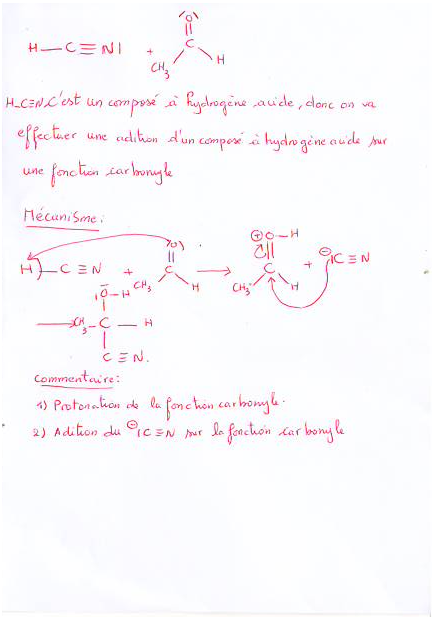 (O)
H—C≡N| + C
CH₃ H
H-C≡N. c'est un composé à hydrogène acide, donc on va
effectuer une adition d'un composé à hydrogène acide sur
une fonction carbonyle
Mécanisme:
(O) ⊕O—H
H)—C≡N + C → C + ⊖|C≡N
CH₃ H CH₃ H
|O—H
→ CH₃—C—H
C≡N.
Commentaire:
1) Protonation de la fonction carbonyle.
2) Adition du ⊖|C≡N sur la fonction carbonyle